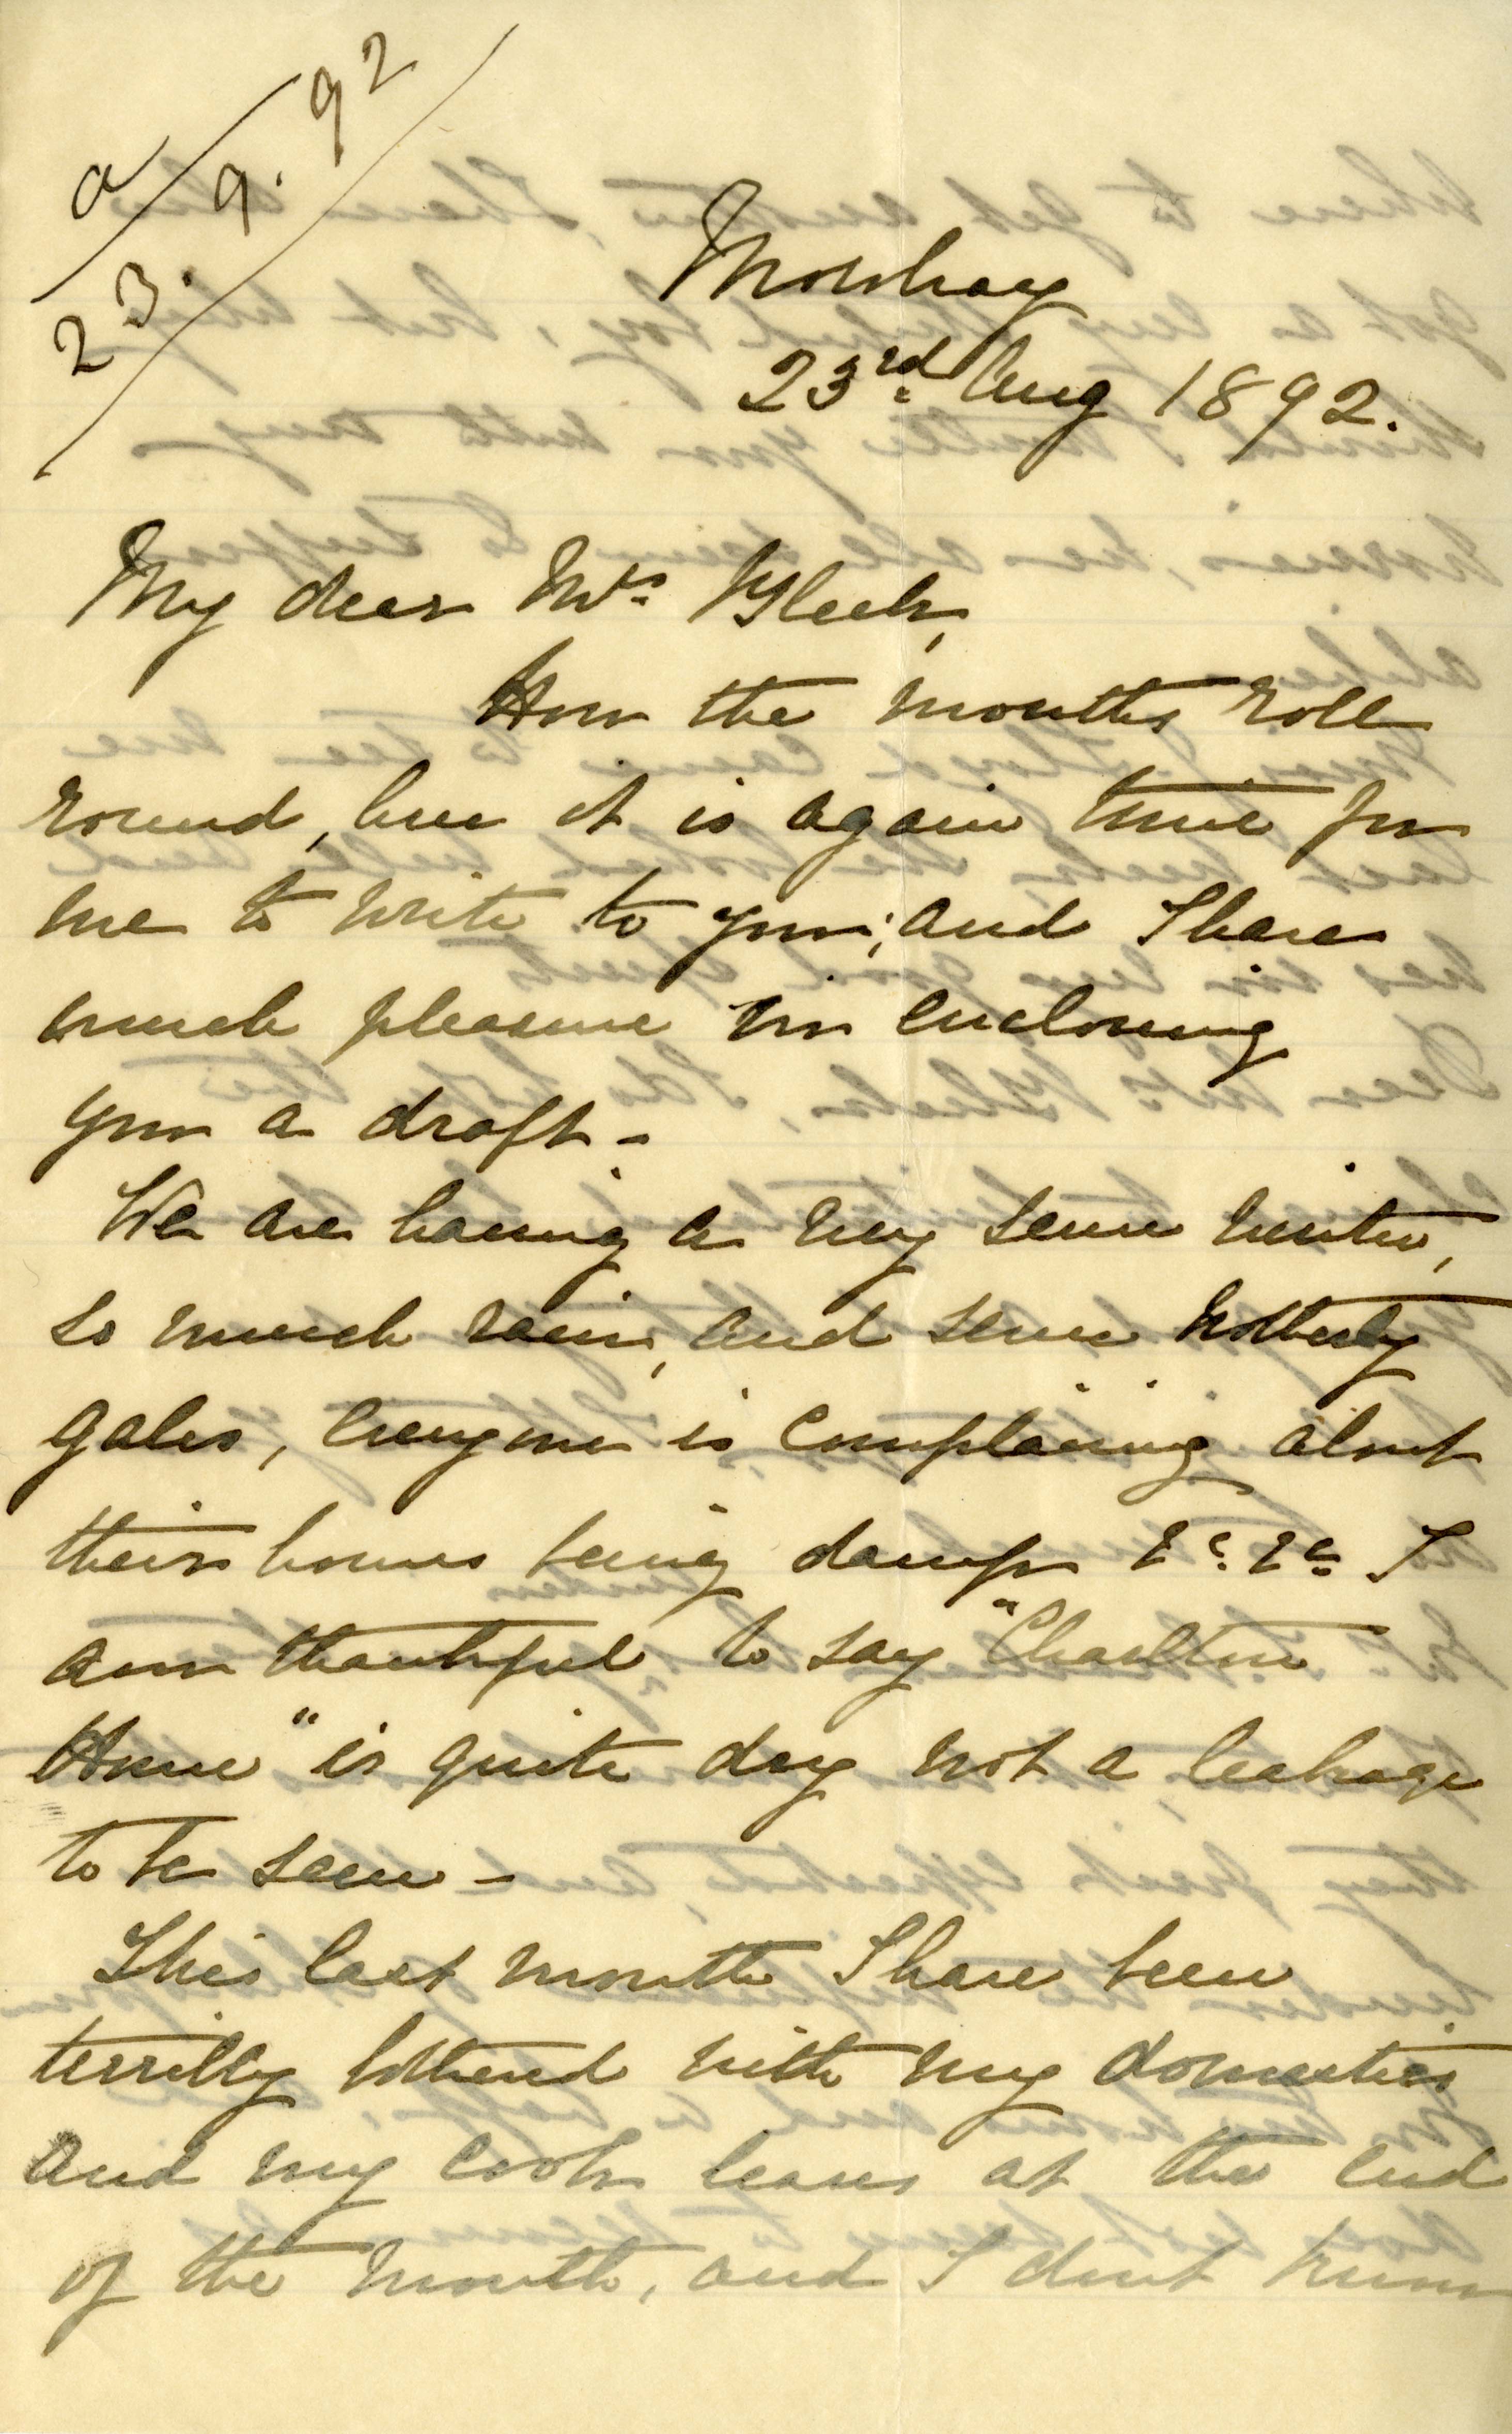 a/
23. 9. 92
Mowbray
23rd Aug 1892.
My dear Mrs Bleek,
How the months roll
round, here it is again time for
me to write to you; and I have
much pleasure in enclosing
you a draft –
We are having a very severe winter,
so much rain, and severe Northerly
gales, everyone is complaining about
their houses being damp &c. &c I
am thankful to say "Charlton
House" is quite dry not a leakage
to be seen –
This last month I have been
terribly bothered with my domestics
and my cook leaves at the end
of the month, and I dont know